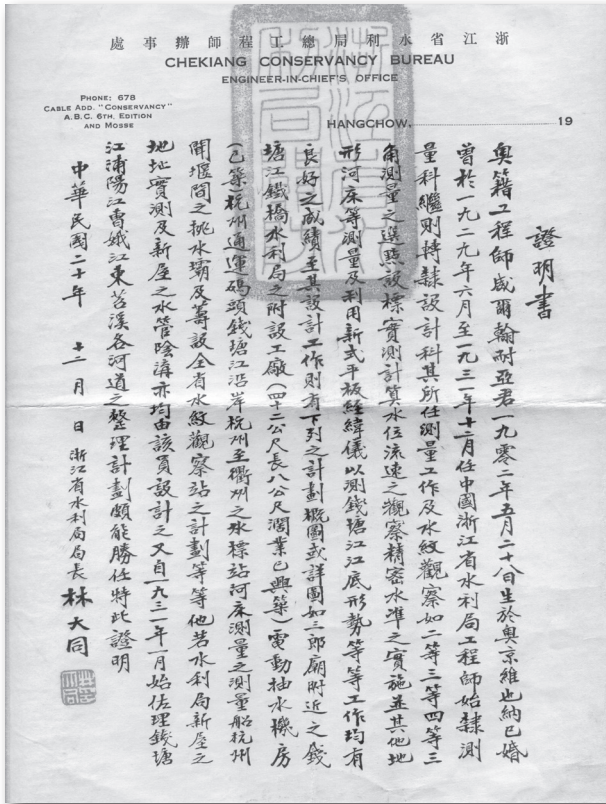 處事辦師程工總局利水省江浙
CHEKIANG CONSERVANCY BUREAU
ENGINEER-IN-CHIEF'S OFFICE
PHONE: 678
CABLE ADD. "CONSERVANCY"
A.B.C. 6TH. EDITION
AND MOSSE
HANGCHOW, 19
證明書
奧籍工程師威爾翰耐亞君一九零二年五月二十八日生於奧京維也納已婚
曾於一九二九年六月至一九三一年十二月任中國浙江省水利局工程師始隸測
量科繼則轉隸設計科其所任測量工作及水紋觀察如二等三等四等三
角測量之選點設標實測計算水位流速之觀察精密水準之實施並其他地
形河床等測量及利用新式平板經緯儀以測錢塘江江底形勢等等工作均有
良好之成績至其設計工作則有下列之計劃概圖或詳圖如三郎廟附近之錢
塘江鐵橋水利局之附設工廠(四十二公尺長八公尺濶業已興築)電動抽水機房
(已築)杭州通運碼頭錢塘江沿岸杭州至衢州之水標站河床測量之測量船杭州
閘堰間之挑水壩及籌設全省水紋觀察站之計劃等等他若水利局新屋之
地址實測及新屋之水管陰溝亦均由該員設計之又自一九三一年一月始佐理錢塘
江浦陽江曹娥江東苕溪各河道之整理計劃頗能勝任特此證明
中華民國二十年 十二月 日 浙江省水利局局長 林大同